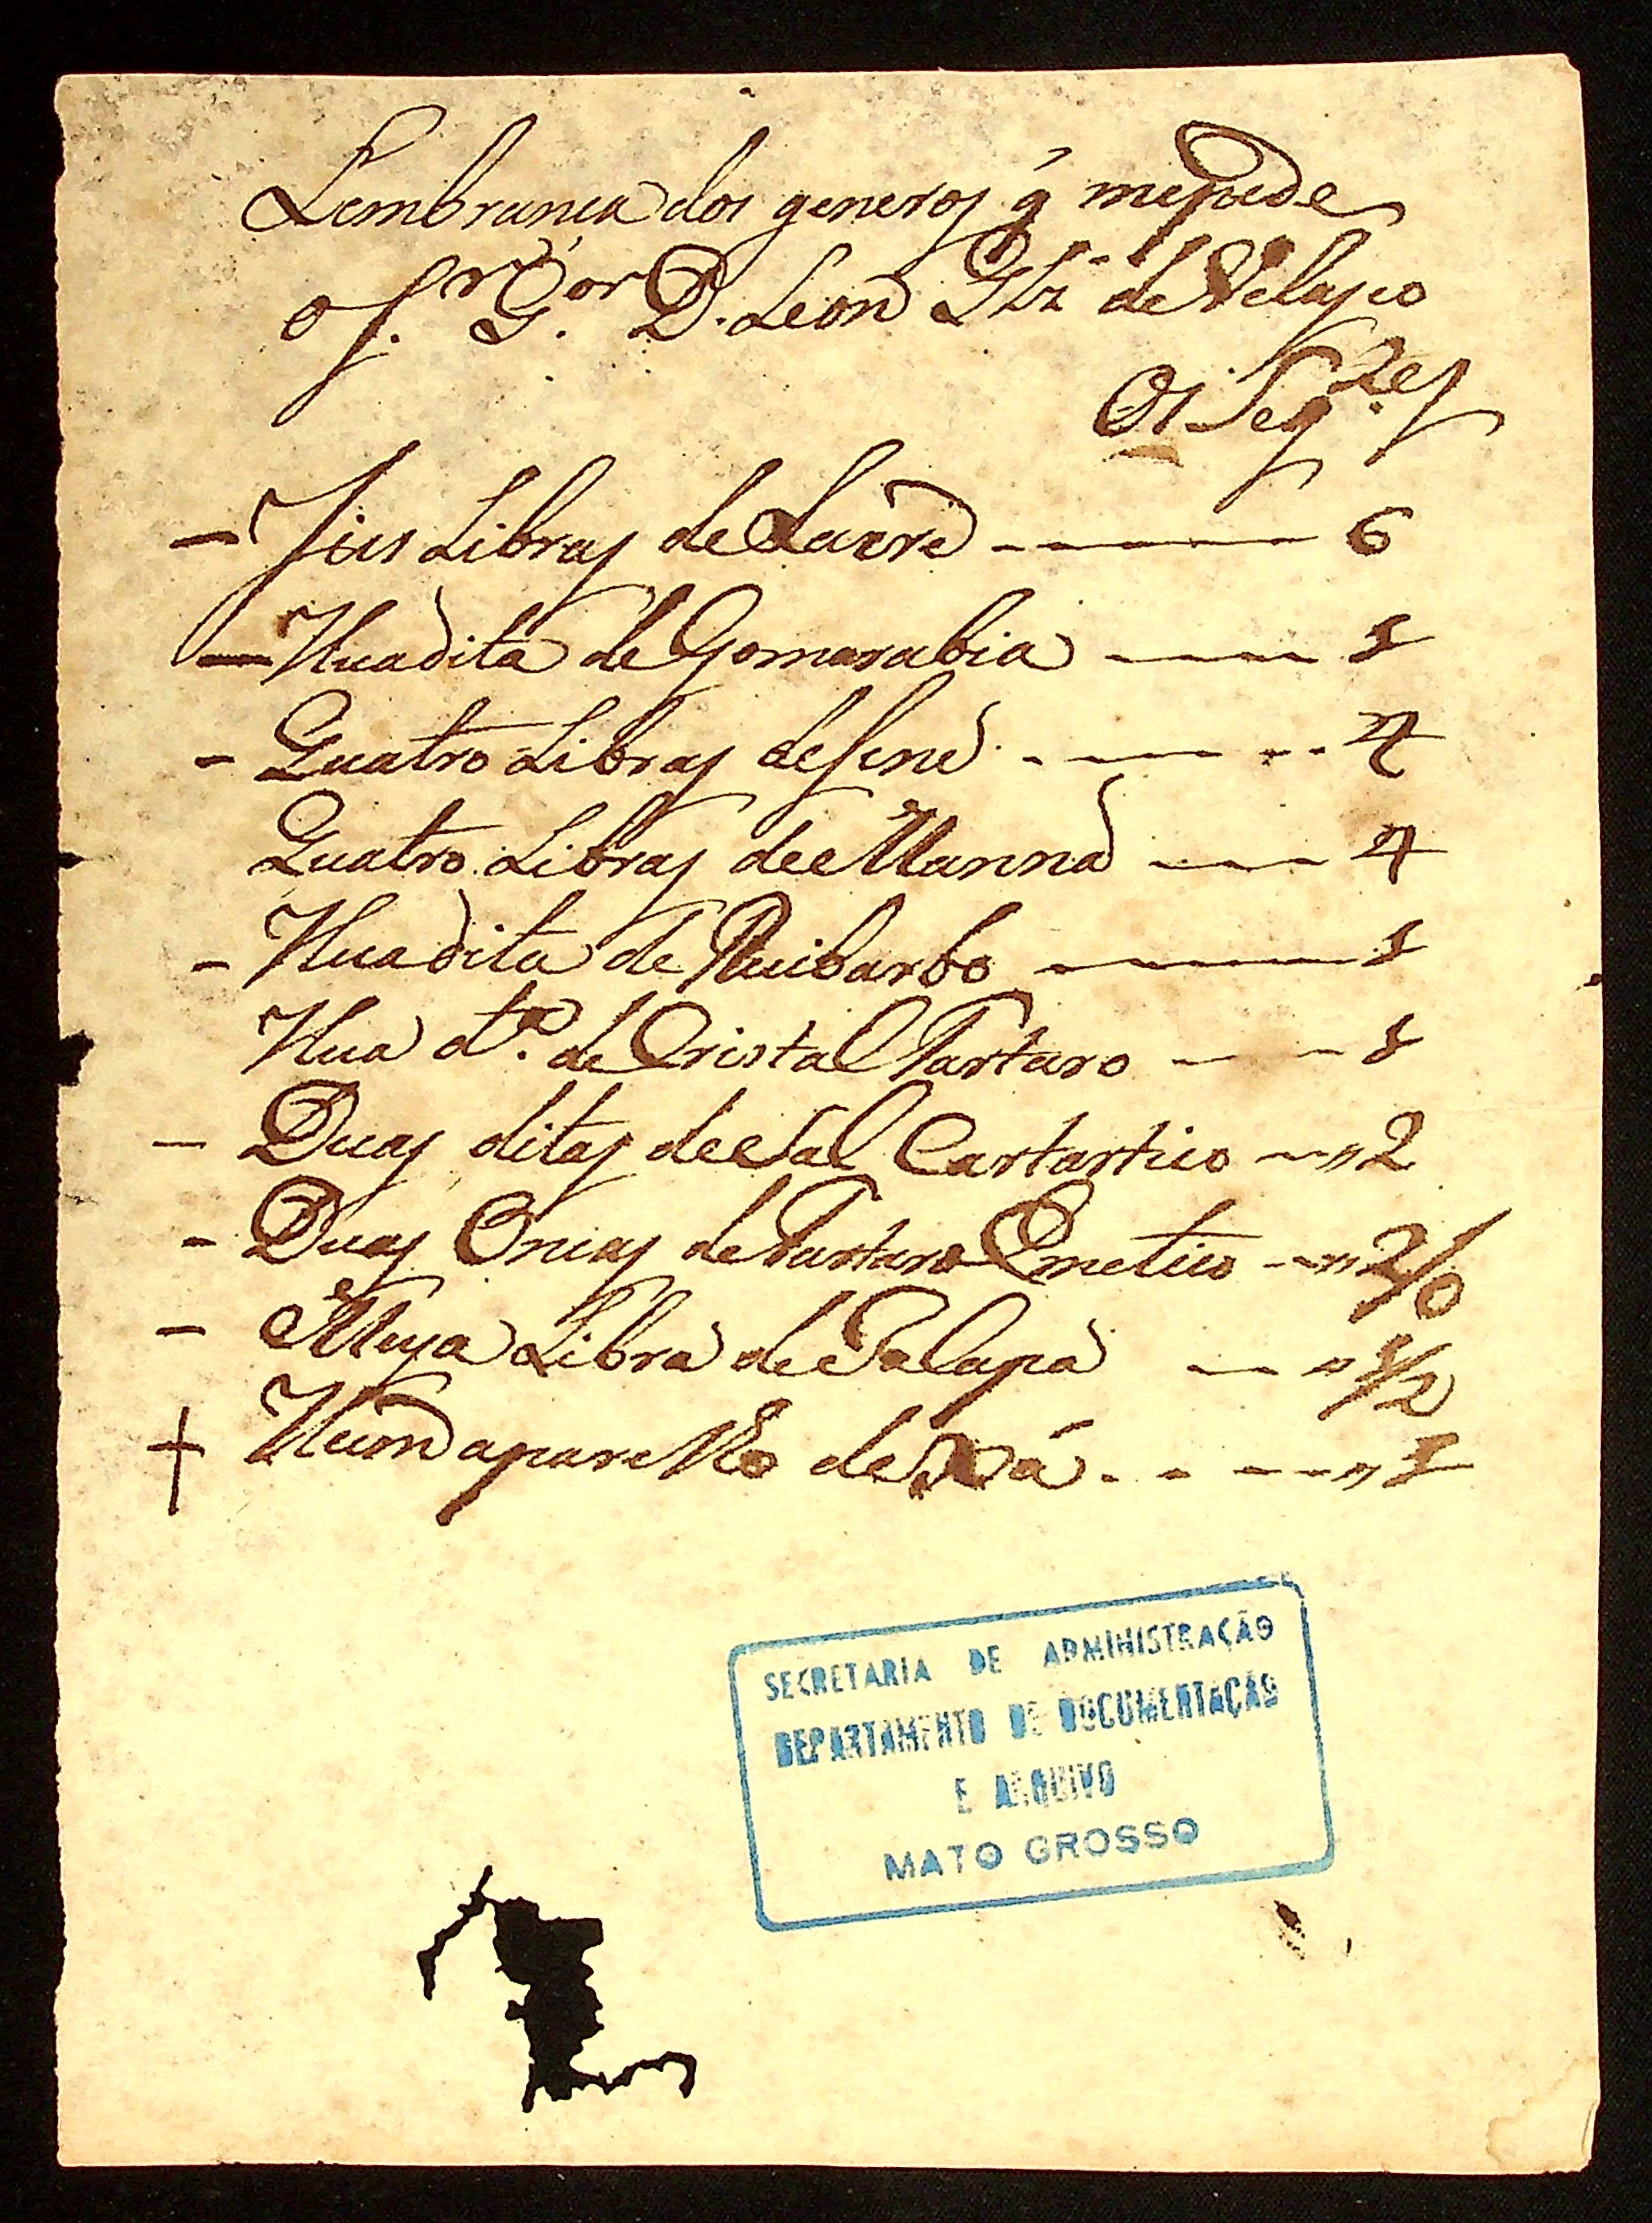 Lembranca dos generos q̃ mepede
o S.r G.or D. Leon Glz de Velasco
Os Seg.tes
– Seis Libras de Lacre ——— 6
– Huadita de Gomarabia ——— 1
– Quatro Libras desene ——— 4
Quatro Libras de Manna ——— 4
– Huadita de Ruibarbo ——— 1
Hua d.ta de Cristal Tartaro ——— 1
– Duas ditas de Sal Cartartico —„ 2
– Duas Oncas de Tartaro Emetico —„ 2/o
– Meya Libra de Jalapa —„ 1/2
+ Hum aparelho de Xá ——„ 1
SECRETARIA DE ADMINISTRAÇÃO
DEPARTAMENTO DE DOCUMENTAÇÃO
E ARQUIVO
MATO GROSSO